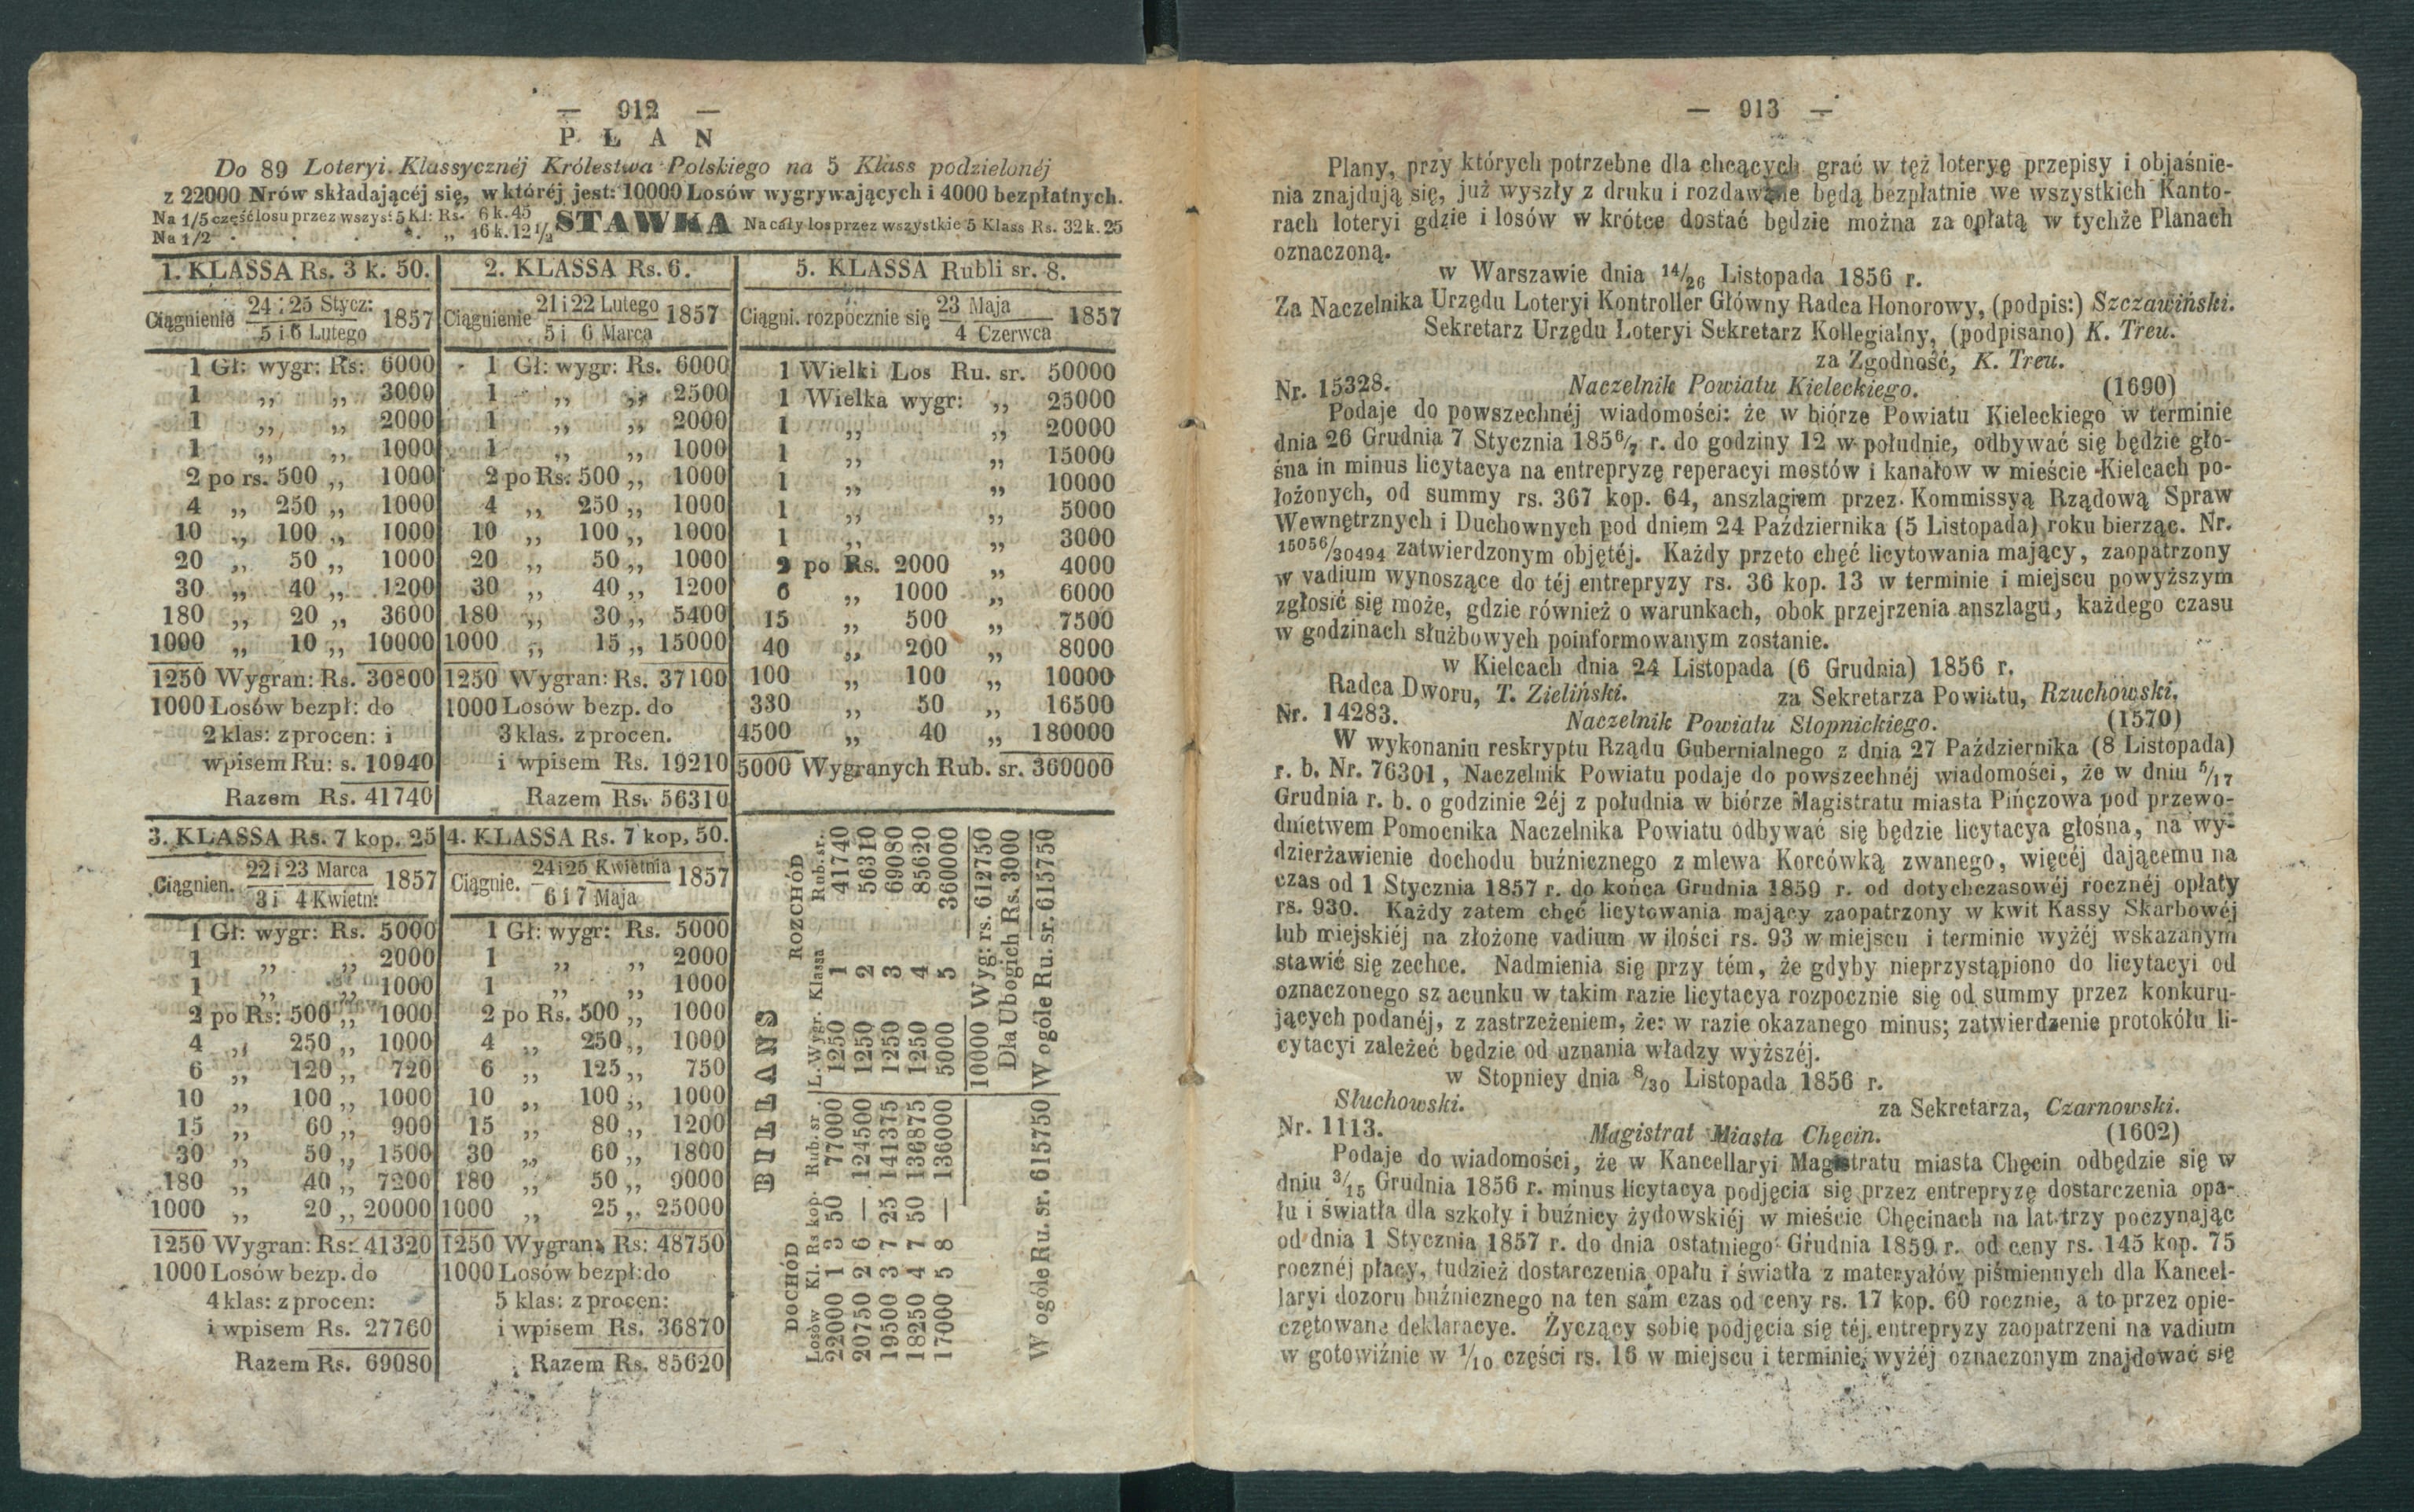 — 912 —
P Ł A N
Do 89 Loteryi Klassycznéj Królestwa Polskiego na 5 Klass podzielonéj
z 22000 Nrów składającéj się, w któréj jest: 10000 Losów wygrywających i 4000 bezpłatnych.
Na 1/5 część losu przez wszys: 5 Kl: Rs. 6 k. 45
Na 1/2 . . . . „ 16 k. 12 1/2
STAWKA
Na cały los przez wszystkie 5 Klass Rs. 32 k. 25
1. KLASSA Rs. 3 k. 50.
Ciągnienie 24 i 25 Stycz: / 5 i 6 Lutego 1857
1 Gł: wygr: Rs: 6000
1 „ „ 3000
1 „ „ 2000
1 „ „ 1000
2 po rs. 500 „ 1000
4 „ 250 „ 1000
10 „ 100 „ 1000
20 „ 50 „ 1000
30 „ 40 „ 1200
180 „ 20 „ 3600
1000 „ 10 „ 10000
1250 Wygran: Rs. 30800
1000 Losów bezpł: do
2 klas: z procen: i
wpisem Ru: s. 10940
Razem Rs. 41740
2. KLASSA Rs. 6.
Ciągnienie 21 i 22 Lutego / 5 i 6 Marca 1857
1 Gł: wygr: Rs. 6000
1 „ „ 2500
1 „ „ 2000
1 „ „ 1000
2 po Rs: 500 „ 1000
4 „ 250 „ 1000
10 „ 100 „ 1000
20 „ 50 „ 1000
30 „ 40 „ 1200
180 „ 30 „ 5400
1000 „ 15 „ 15000
1250 Wygran: Rs. 37100
1000 Losów bezp. do
3 klas. z procen.
i wpisem Rs. 19210
Razem Rs. 56310
5. KLASSA Rubli sr. 8.
Ciągni. rozpocznie się 23 Maja / 4 Czerwca 1857
1 Wielki Los Ru. sr. 50000
1 Wielka wygr: „ 25000
1 „ „ 20000
1 „ „ 15000
1 „ „ 10000
1 „ „ 5000
1 „ „ 3000
2 po Rs. 2000 „ 4000
6 „ 1000 „ 6000
15 „ 500 „ 7500
40 „ 200 „ 8000
100 „ 100 „ 10000
330 „ 50 „ 16500
4500 „ 40 „ 180000
5000 Wygranych Rub. sr. 360000
3. KLASSA Rs. 7 kop. 25
Ciągnien. 22 i 23 Marca / 3 i 4 Kwietn: 1857
1 Gł: wygr: Rs. 5000
1 „ „ 2000
1 „ „ 1000
2 po Rs: 500 „ 1000
4 „ 250 „ 1000
6 „ 120 „ 720
10 „ 100 „ 1000
15 „ 60 „ 900
30 „ 50 „ 1500
180 „ 40 „ 7200
1000 „ 20 „ 20000
1250 Wygran: Rs: 41320
1000 Losów bezp. do
4 klas: z procen:
i wpisem Rs. 27760
Razem Rs. 69080
4. KLASSA Rs. 7 kop, 50.
Ciągnie. 24 i 25 Kwietnia / 6 i 7 Maja 1857
1 Gł: wygr: Rs. 5000
1 „ „ 2000
1 „ „ 1000
2 po Rs. 500 „ 1000
4 „ 250 „ 1000
6 „ 125 „ 750
10 „ 100 „ 1000
15 „ 80 „ 1200
30 „ 60 „ 1800
180 „ 50 „ 9000
1000 „ 25 „ 25000
1250 Wygran: Rs: 48750
1000 Losów bezpł: do
5 klas: z procen:
i wpisem Rs. 36870
Razem Rs. 85620
BILLANS
DOCHÓD ROZCHÓD
Losów Kl. Rs kop. Rub. sr. L. Wygr. Klassa Rub. sr.
22000 1 3 50 77000 1250 1 41740
20750 2 6 — 124500 1250 2 56310
19500 3 7 25 141375 1250 3 69080
18250 4 7 50 136875 1250 4 85620
17000 5 8 — 136000 5000 5 360000
10000 Wyg: rs. 612750
Dla Ubogich Rs. 3000
W ogóle Ru. sr. 615750 W ogóle Ru. sr. 615750
— 913 —
Plany, przy których potrzebne dla chcących grać w tęż loteryę przepisy i objaśnie-
nia znajdują się, już wyszły z druku i rozdawane będą bezpłatnie we wszystkich Kanto-
rach loteryi gdzie i losów w krótce dostać będzie można za opłatą w tychże Planach
oznaczoną.
w Warszawie dnia 14/26 Listopada 1856 r.
Za Naczelnika Urzędu Loteryi Kontroller Główny Radca Honorowy, (podpis:) Szczawiński.
Sekretarz Urzędu Loteryi Sekretarz Kollegialny, (podpisano) K. Treu.
za Zgodność, K. Treu.
Nr. 15328. Naczelnik Powiatu Kieleckiego. (1690)
Podaje do powszechnéj wiadomości: że w biórze Powiatu Kieleckiego w terminie
dnia 26 Grudnia 7 Stycznia 1856/7 r. do godziny 12 w południe, odbywać się będzie gło-
śna in minus licytacya na entrepryzę reperacyi mostów i kanałow w mieście Kielcach po-
łożonych, od summy rs. 367 kop. 64, anszlagiem przez Kommissyą Rządową Spraw
Wewnętrznych i Duchownych pod dniem 24 Października (5 Listopada) roku bierząc. Nr.
15056/30494 zatwierdzonym objętéj. Każdy przeto chęć licytowania mający, zaopatrzony
w vadium wynoszące do téj entrepryzy rs. 36 kop. 13 w terminie i miejscu powyższym
zgłosić się może, gdzie również o warunkach, obok przejrzenia anszlagu, każdego czasu
w godzinach służbowych poinformowanym zostanie.
w Kielcach dnia 24 Listopada (6 Grudnia) 1856 r.
Radca Dworu, T. Zieliński. za Sekretarza Powiatu, Rzuchowski.
Nr. 14283. Naczelnik Powiatu Stopnickiego. (1570)
W wykonaniu reskryptu Rządu Gubernialnego z dnia 27 Października (8 Listopada)
r. b. Nr. 76301, Naczelnik Powiatu podaje do powszechnéj wiadomości, że w dniu 5/17
Grudnia r. b. o godzinie 2éj z południa w biórze Magistratu miasta Pińczowa pod przewo-
dnictwem Pomocnika Naczelnika Powiatu odbywać się będzie licytacya głośna, na wy-
dzierżawienie dochodu buźnicznego z mlewa Korcówką zwanego, więcéj dającemu na
czas od 1 Stycznia 1857 r. do końca Grudnia 1859 r. od dotychczasowéj rocznéj opłaty
rs. 930. Każdy zatem chęć licytowania mający zaopatrzony w kwit Kassy Skarbowéj
lub miejskiéj na złożone vadium w ilości rs. 93 w miejscu i terminie wyżéj wskazanym
stawić się zechce. Nadmienia się przy tém, że gdyby nieprzystąpiono do licytacyi od
oznaczonego szacunku w takim razie licytacya rozpocznie się od summy przez konkuru-
jących podanéj, z zastrzeżeniem, że: w razie okazanego minus; zatwierdzenie protokółu li-
cytacyi zależeć będzie od uznania władzy wyższéj.
w Stopnicy dnia 8/30 Listopada 1856 r.
Słuchowski. za Sekretarza, Czarnowski.
Nr. 1113. Magistrat Miasta Chęcin. (1602)
Podaje do wiadomości, że w Kancellaryi Magistratu miasta Chęcin odbędzie się w
dniu 3/15 Grudnia 1856 r. minus licytacya podjęcia się przez entrepryzę dostarczenia opa-
łu i światła dla szkoły i buźnicy żydowskiéj w mieście Chęcinach na lat trzy poczynając
od dnia 1 Stycznia 1857 r. do dnia ostatniego Grudnia 1859 r. od ceny rs. 145 kop. 75
rocznéj płacy, tudzież dostarczenia opału i światła z materyałów piśmiennych dla Kancel-
laryi dozoru buźnicznego na ten sam czas od ceny rs. 17 kop. 60 rocznie, a to przez opie-
czętowane deklaracye. Życzący sobie podjęcia się téj entrepryzy zaopatrzeni na vadium
w gotowiźnie w 1/10 części rs. 16 w miejscu i terminie wyżéj oznaczonym znajdować się